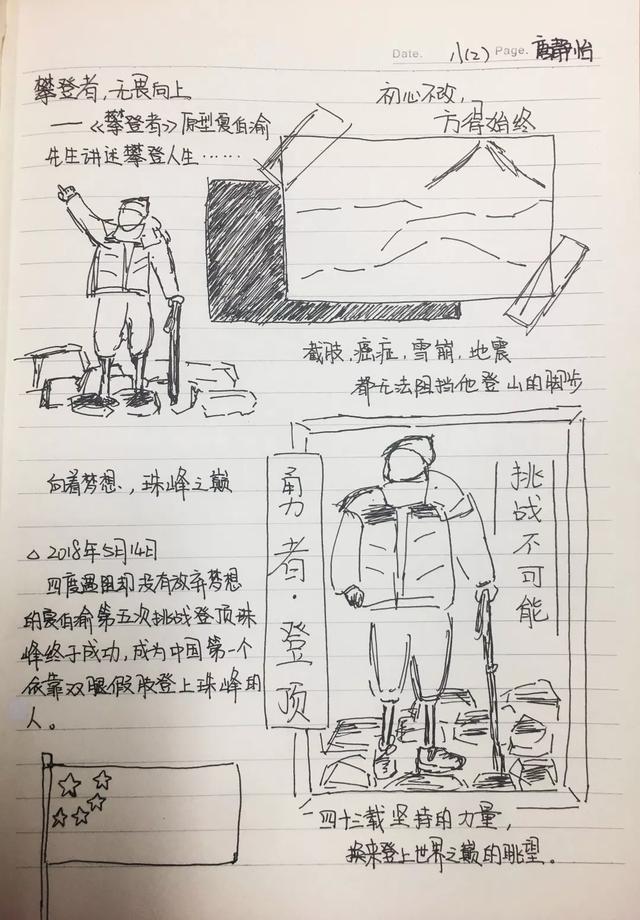 Date. 八(2) Page. 唐静怡
攀登者,无畏向上
——《攀登者》原型夏伯渝
先生讲述攀登人生……
初心不改,
方得始终
截肢,癌症,雪崩,地震
都无法阻挡他登山的脚步
向着梦想,珠峰之巅
△2018年5月14日
四度遇阻却没有放弃梦想
的夏伯渝第五次挑战登顶珠
峰终于成功,成为中国第一个
依靠双腿假肢登上珠峰的
人。
勇者·登顶
挑战不可能
四十三载坚持的力量,
换来登上世界之巅的眺望。